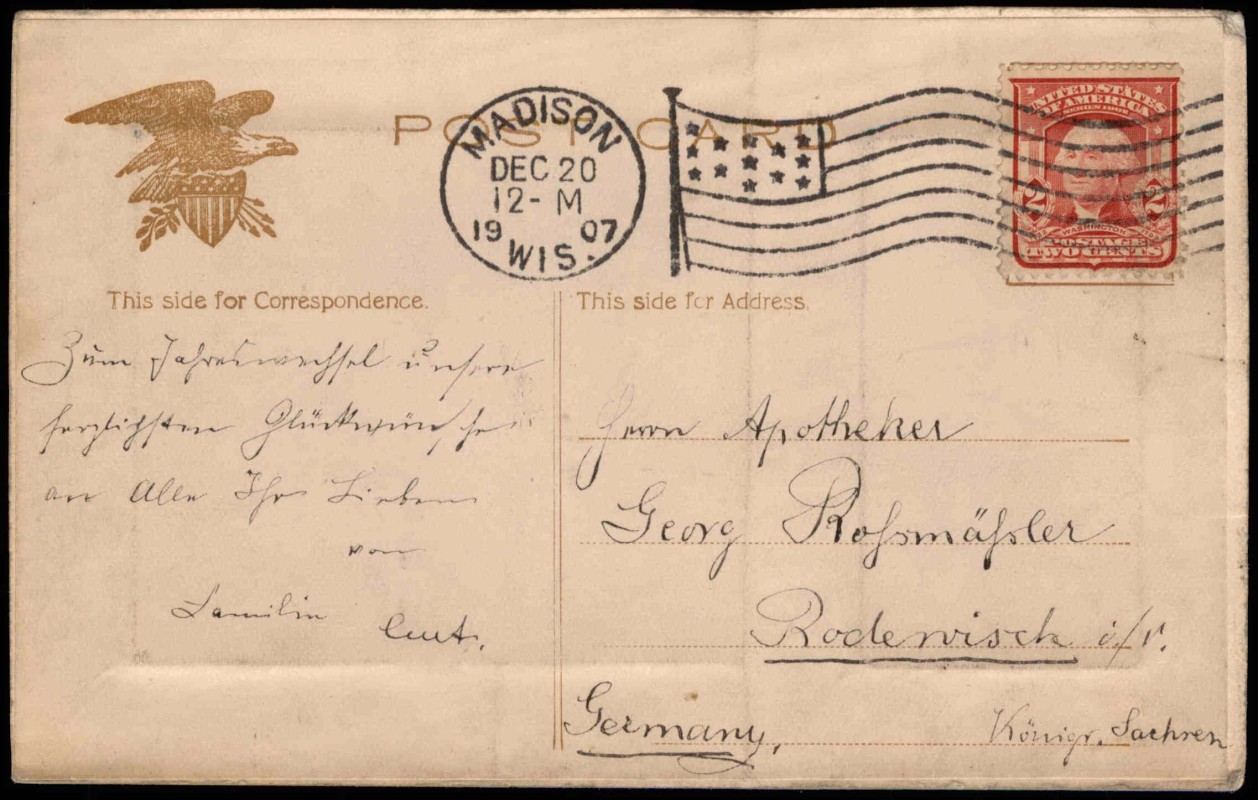 POST CARD
MADISON
DEC 20
12- M
1907
WIS.
UNITED STATES
OF AMERICA
2 2
WASHINGTON
POSTAGE
TWO CENTS
This side for Correspondence.
Zum Jahreswechsel unsere
herzlichsten Glückwünsche
an Alle Ihre Lieben
von
Familie
This side for Address.
Herrn Apotheker
Georg Roßmäßler
Rodewisch i/V.
Germany,
Königr. Sachsen